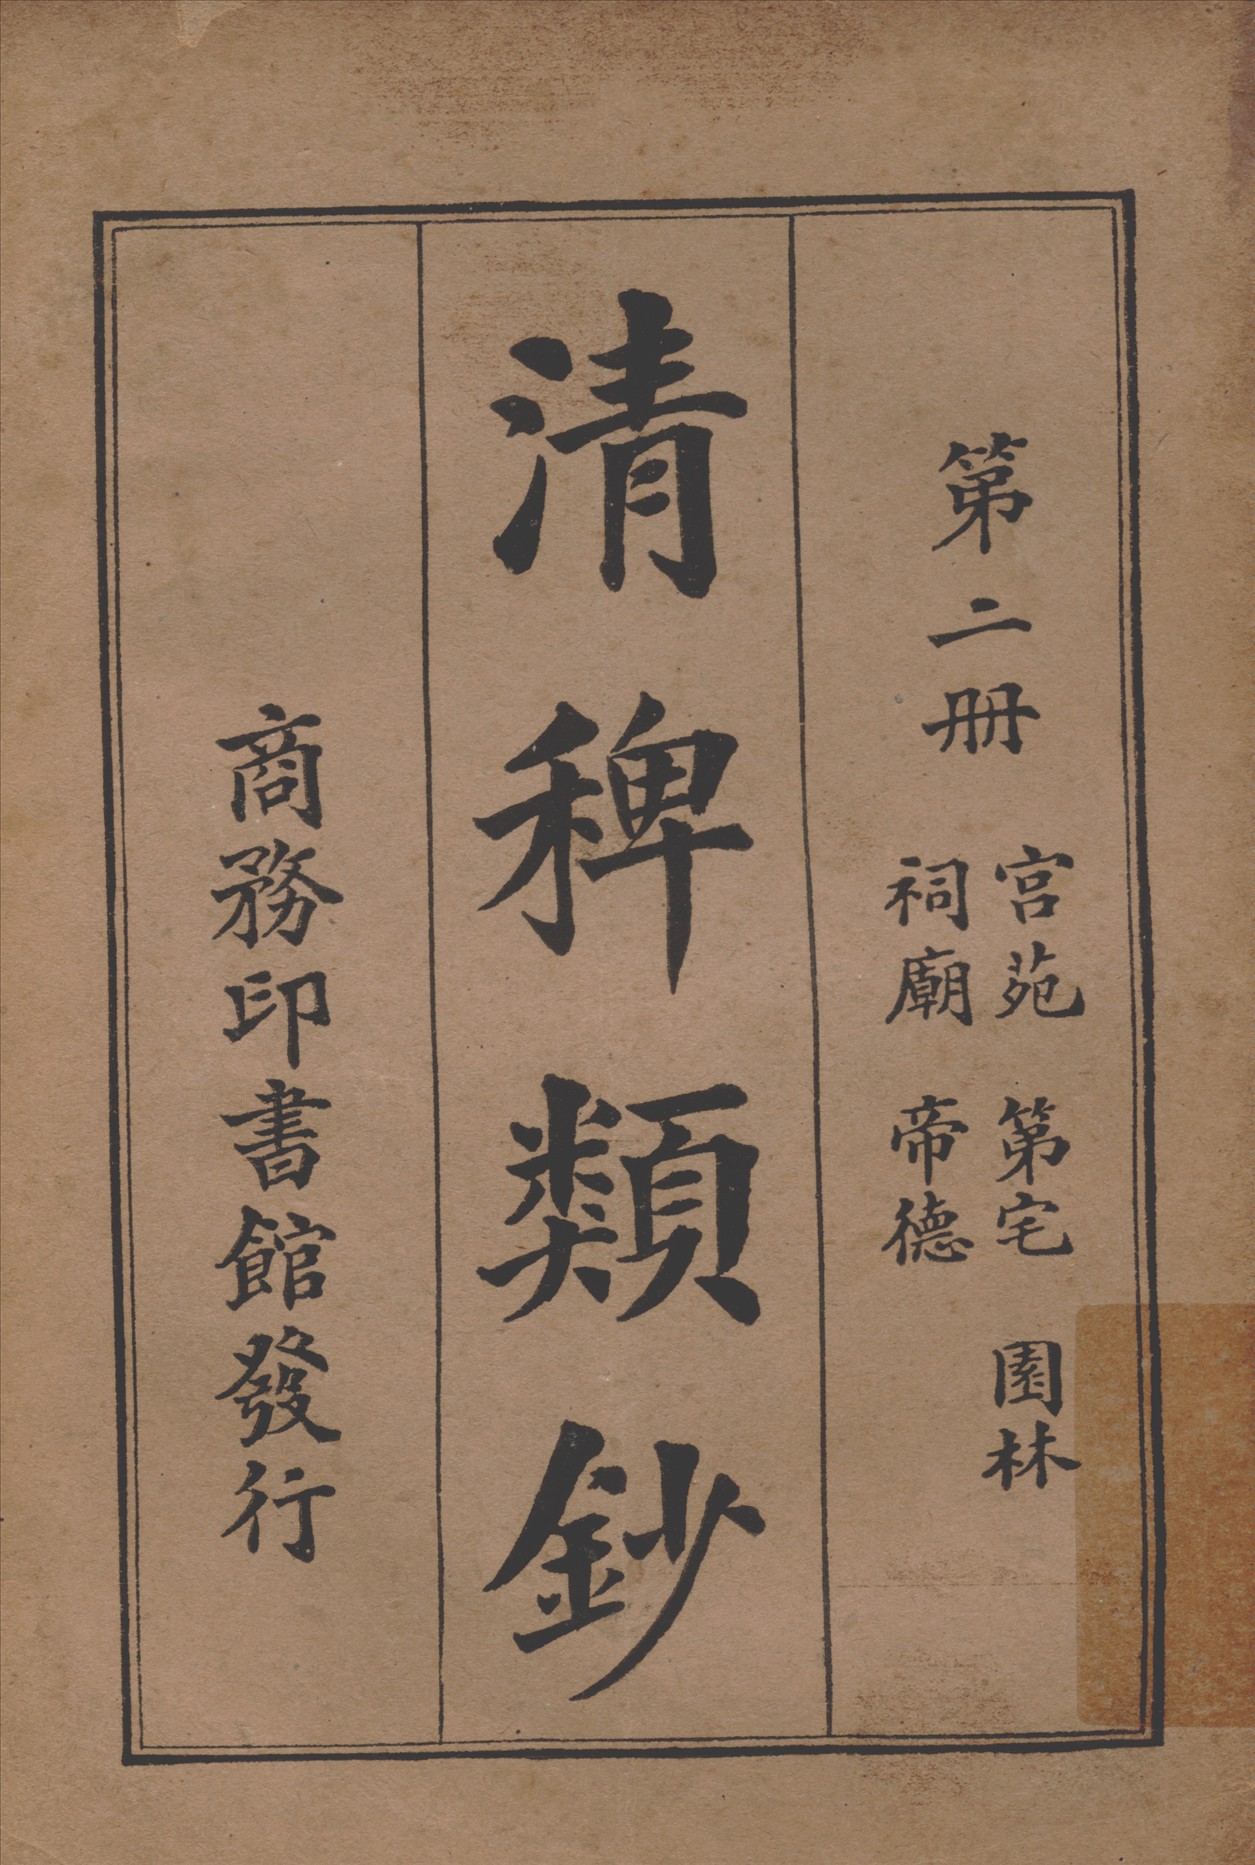 第二册
宮苑 第宅 園林
祠廟 帝德
清稗類鈔
商務印書館發行